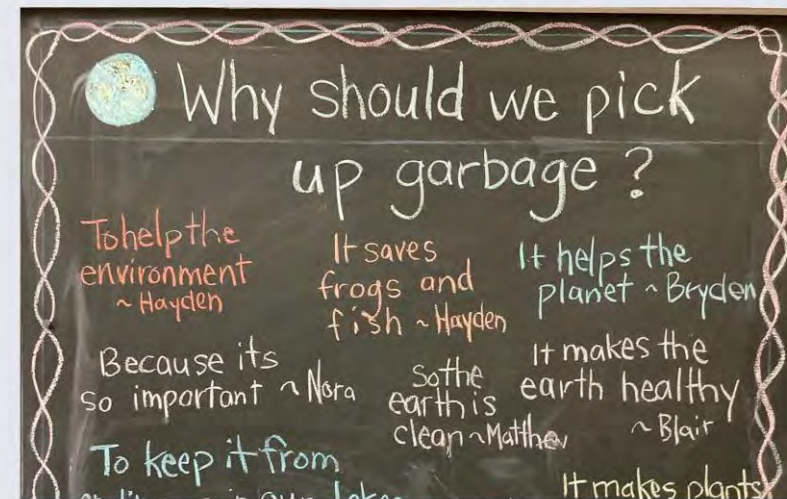 Why should we pick
up garbage?
To help the
environment
~ Hayden
It saves
frogs and
fish ~ Hayden
It helps the
planet ~ Bryden
Because its
so important ~ Nora
So the
earth is
clean ~ Matthew
It makes the
earth healthy
~ Blair
To keep it from
in our lakes
It makes plants